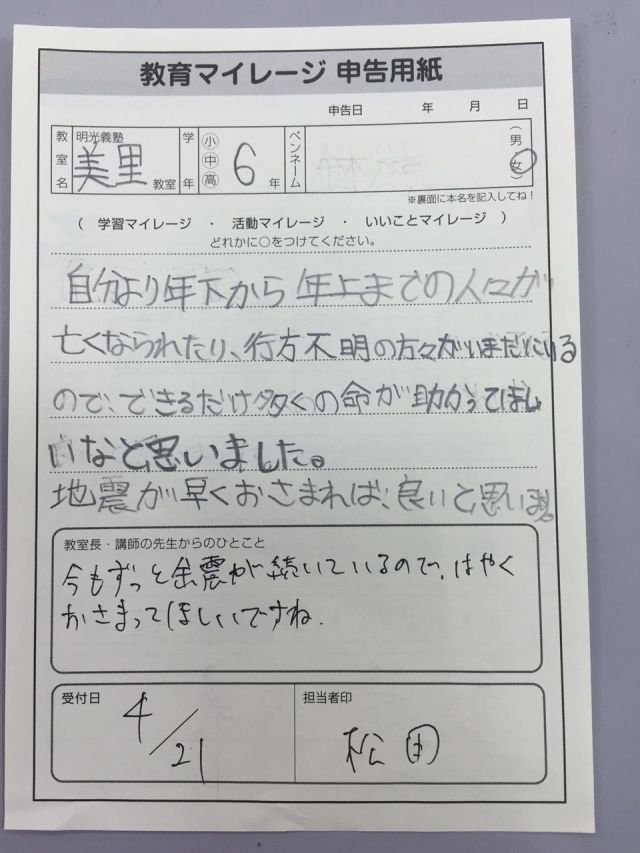 教育マイレージ 申告用紙
申告日 年 月 日
教室名 明光義塾 美里 教室 学年 小 中 高 6 年 ペンネーム （男・女）
※裏面に本名を記入してね！
（ 学習マイレージ ・ 活動マイレージ ・ いいことマイレージ ）
どれかに○をつけてください。
自分より年下から年上までの人々が
亡くなられたり、行方不明の方々がいまだにいる
ので、できるだけ多くの命が助かってほし
いなと思いました。
地震が早くおさまれば、良いと思います。
教室長・講師の先生からのひとこと
今もずっと余震が続いているので、はやく
おさまってほしいですね.
受付日 4/21 担当者印 松田